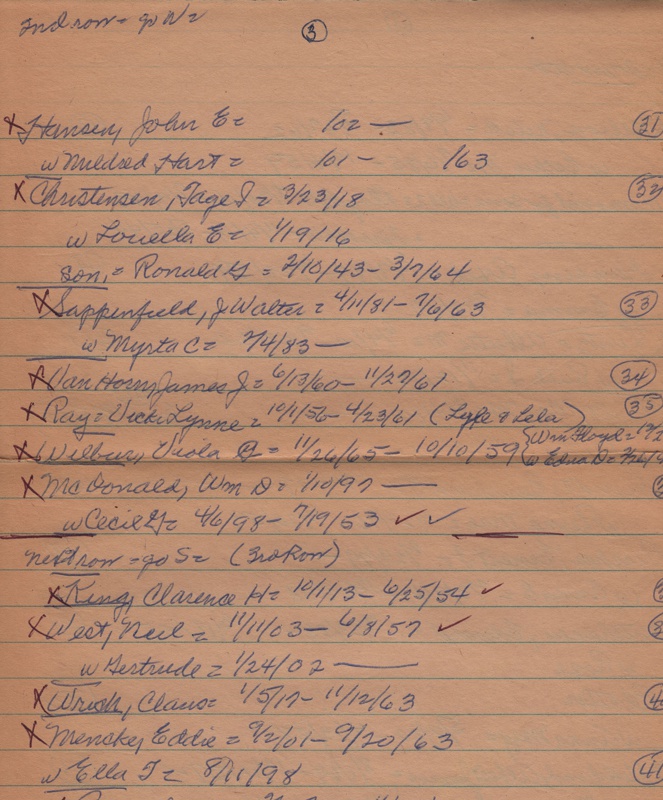 2nd row = go N =
3
X Hansen, John E = /02 — 31
w Mildred Hart = /01 - /63
X Christensen, Tage I = 3/23/18 32
w Louella E = 1/19/16
son, = Ronald G = 2/10/43 - 3/7/64
X Sappenfield, J Walter = 4/11/81 - 7/6/63 33
w Myrta C = 7/4/83 —
X Van Horn, James J = 6/13/60 - 11/27/61 34
X Ray = Vicki Lynne = 10/1/56 - 4/23/61 (Lyle & Lela) 35
X Wilbur, Viola = 11/26/65 - 10/10/59 { Wm Floyd =
w Edna D =
X McDonald, Wm D = 1/10/97 —
w Cecil G = 4/6/98 - 7/19/53 ✓ ✓
next row = go S = (3rd Row)
X King, Clarence H = 10/1/13 - 6/25/54 ✓
X West, Neil = 11/11/03 - 6/8/57 ✓
w Gertrude = 1/24/02 —
X Claus = 1/5/17 - 11/12/63
X Mencke, Eddie = 9/2/01 - 9/20/63
w Ella T = 8/11/98 41